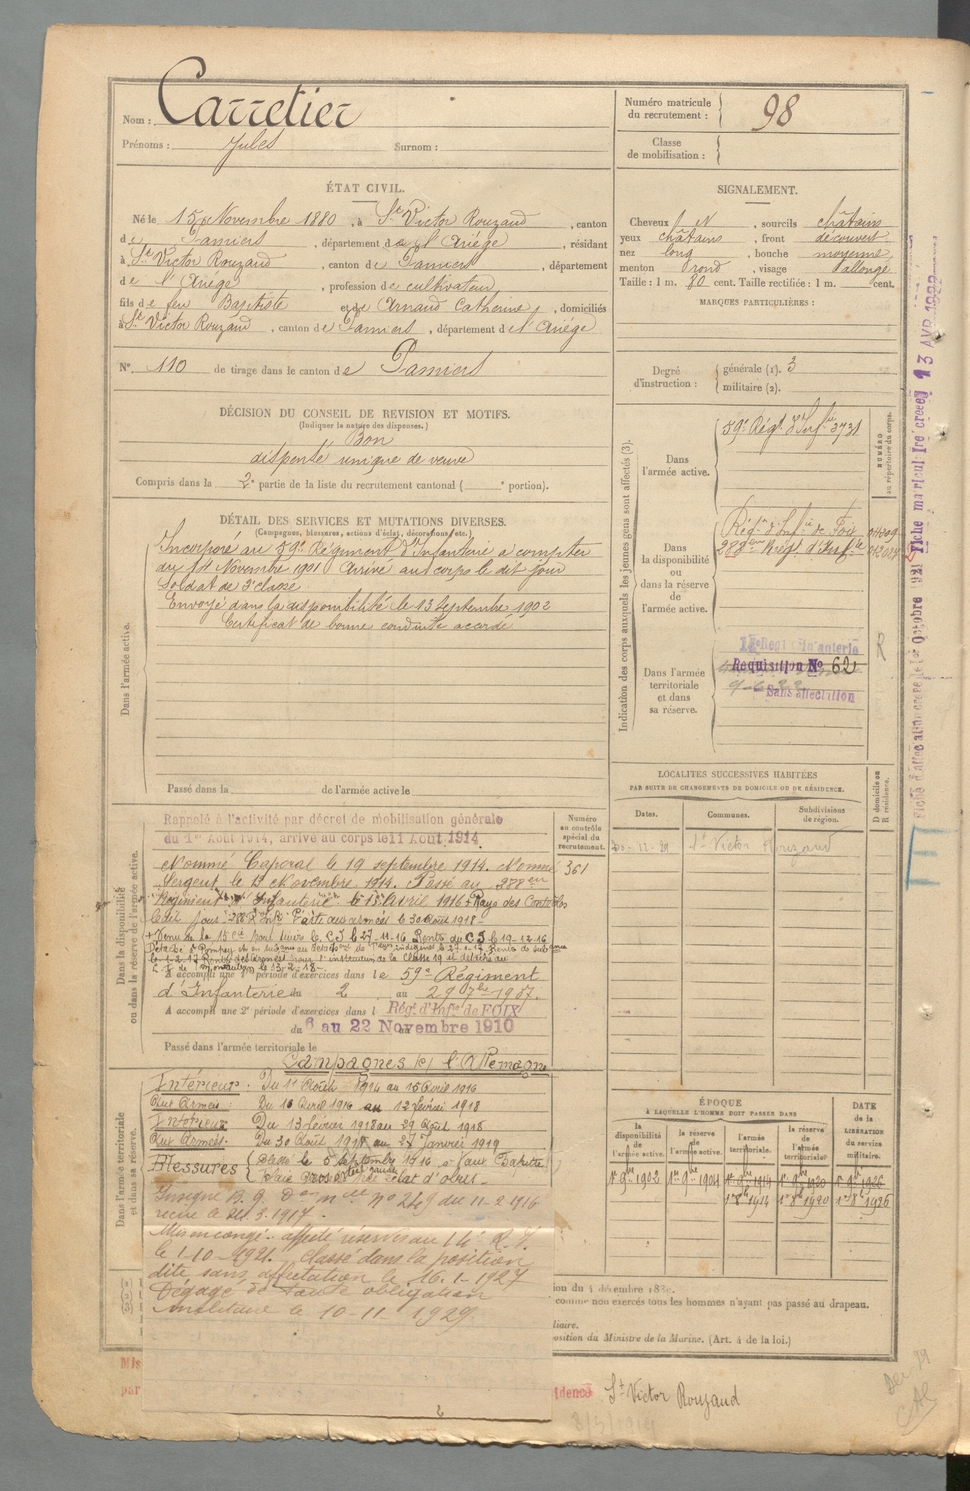 Nom : Carretier
Prénoms : Jules Surnom :
Numéro matricule du recrutement : 98
Classe de mobilisation :
ÉTAT CIVIL.
Né le 15 Novembre 1880, à St Victor Rouzaud, canton
de Pamiers, département de l'Ariège, résidant
à St Victor Rouzaud, canton de Pamiers, département
de l'Ariège, profession de cultivateur,
fils de feu Baptiste et de Arnaud Catherine, domiciliés
à St Victor Rouzaud, canton de Pamiers, département de l'Ariège
N° 110 de tirage dans le canton de Pamiers
SIGNALEMENT.
Cheveux N, sourcils châtains
yeux châtains, front découvert
nez long, bouche moyenne
menton rond, visage allongé
Taille : 1 m. 80 cent. Taille rectifiée : 1 m. cent.
MARQUES PARTICULIÈRES :
Degré d'instruction : générale (1). 3
militaire (2).
DÉCISION DU CONSEIL DE REVISION ET MOTIFS.
(Indiquer la nature des dispenses.)
Bon
dispensé unique de veuve
Compris dans la 2e partie de la liste du recrutement cantonal ( e portion).
DÉTAIL DES SERVICES ET MUTATIONS DIVERSES.
(Campagnes, blessures, actions d'éclat, décorations, etc.)
Dans l'armée active.
Incorporé au 59e Régiment d'Infanterie à compter
du 14 Novembre 1901 Arrivé au corps le dit jour
Soldat de 2e classe
Envoyé dans la disponibilité le 13 Septembre 1902
Certificat de bonne conduite accordé
Passé dans la de l'armée active le
Indication des corps auxquels les jeunes gens sont affectés (3).
NUMÉRO au répertoire du corps.
Dans l'armée active.
59e Régt d'Infie 3731
Dans la disponibilité ou dans la réserve de l'armée active.
Régt d'Infie de Foix
288ème Régt d'Infie
Dans l'armée territoriale et dans sa réserve.
Requisition No 62
Sans affectation
R
LOCALITÉS SUCCESSIVES HABITÉES
PAR SUITE DE CHANGEMENTS DE DOMICILE OU DE RÉSIDENCE.
Dates. Communes. Subdivisions de région.
D domicile ou R résidence.
St Victor Rouzaud
Dans la disponibilité ou dans la réserve de l'armée active.
Numéro au contrôle spécial du recrutement.
361
Rappelé à l'activité par décret de mobilisation générale
du 1er Août 1914, arrivé au corps le 11 Août 1914
Nommé Caporal le 19 septembre 1914. Nommé
Sergent le 15 Novembre 1914. Passé au 288ème
Régiment d'Infanterie le 15 Avril 1916 + Rayé des Contrôles
le dit jour 288e Inf. Parti aux armées le 30 Août 1918 -
A accompli une 1re période d'exercices dans le 59e Régiment
d'Infanterie du 2 au 29 7bre 1907.
A accompli une 2e période d'exercices dans l Régt d'Infie de FOIX
du 6 au 22 Novembre 1910
Passé dans l'armée territoriale le
Dans l'armée territoriale et dans sa réserve.
Campagnes c/ l'Allemagne
Intérieur. Du 11 Août 1914 au 15 Avril 1916
Aux Armées : Du 16 Avril 1916 au 12 février 1918
Intérieur Du 13 février 1918 au 29 Août 1918
Aux Armées. Du 30 Août 1918 au 27 Janvier 1919
Blessures Blessé le 5 Septembre 1916 à Vaux Chapitre
éclat d'obus.
Insigne B. G. no 249 du 11-2-1916
reçue le 24.3.1917.
Mis en congé. affecté réserves au 14e R.I.
le 1-10-1921. classé dans la position
dite sans affectation le 16.1-1927
Dégagé de toute obligation
militaire le 10-11-1929.
ÉPOQUE
À LAQUELLE L'HOMME DOIT PASSER DANS
la disponibilité de l'armée active. la réserve de l'armée active. l'armée territoriale. la réserve de l'armée territoriale.
DATE de la LIBÉRATION du service militaire.
1er 9bre 1902 1er 9bre 1904 1er 9bre 1914 1er 9bre 1920 1er 9bre 1926
1er 8bre 1914 1er 8bre 1920 1er 8bre 1926
comme non exercés tous les hommes n'ayant pas passé au drapeau.
osition du Ministre de la Marine. (Art. 4 de la loi.)
Mis
par
idence St Victor Rouzaud
Fiche matricule
13 AVR